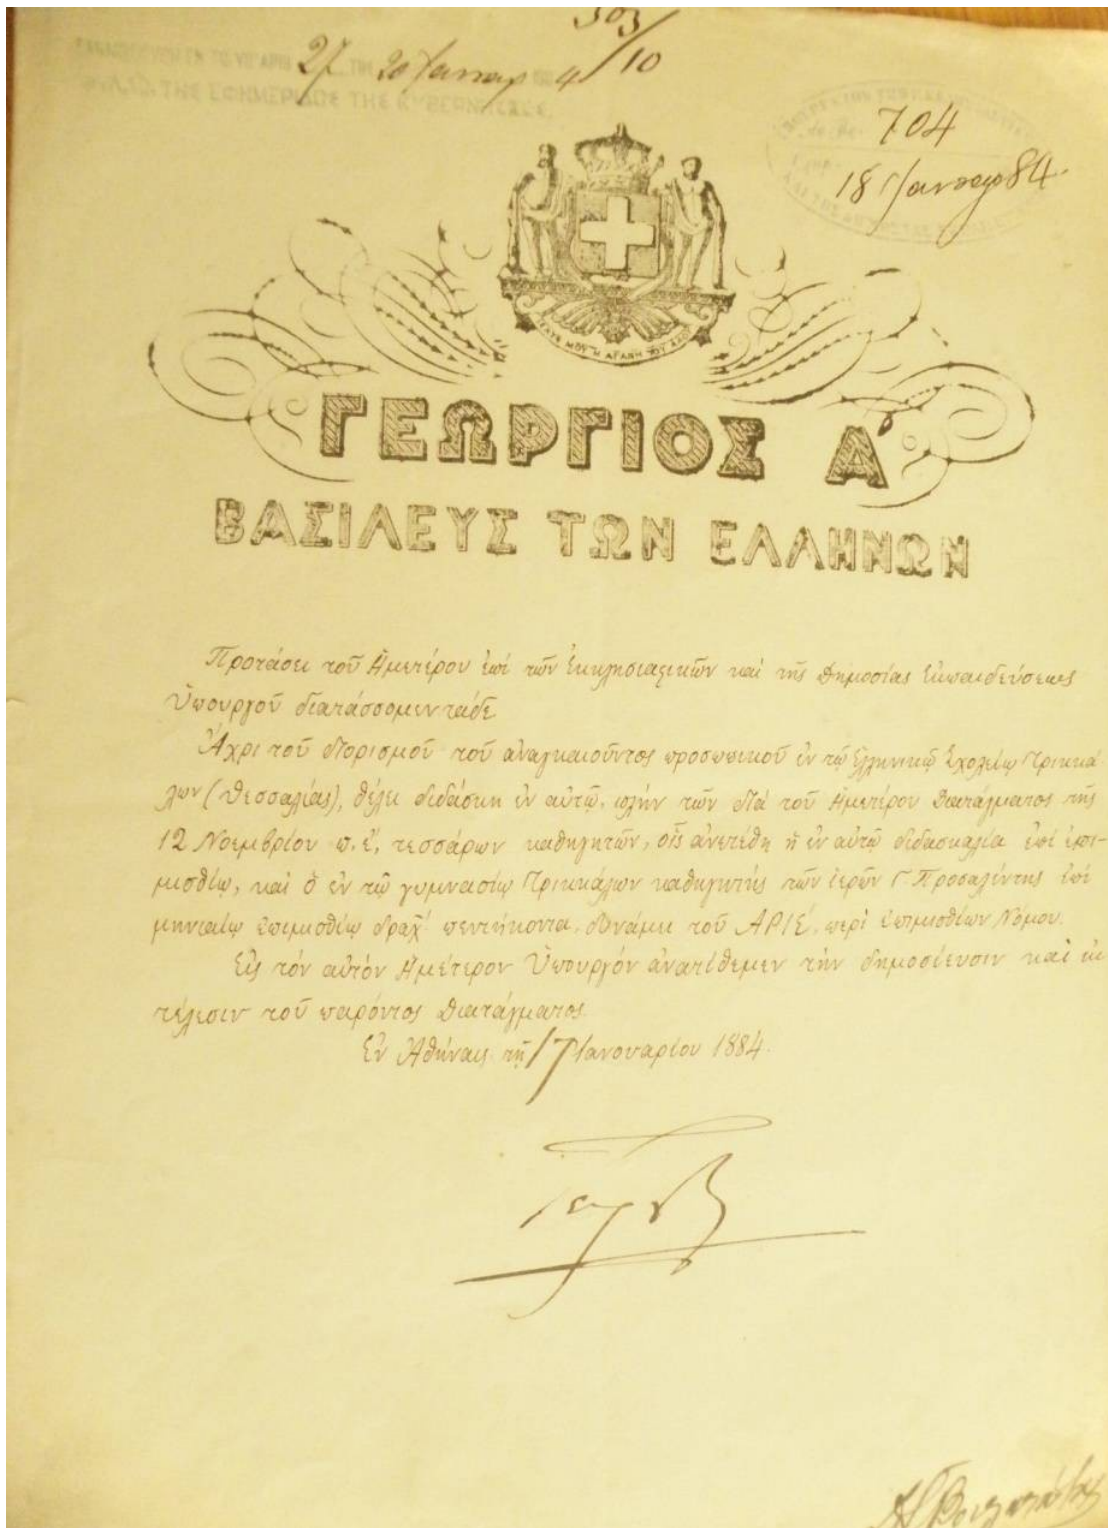 303/10
27 20 Ἰανουαρ 4
ΦΥΛΛΟΝ ΤΗΣ ΕΦΗΜΕΡΙΔΟΣ ΤΗΣ ΚΥΒΕΡΝΗΣΕΩΣ
704
18 Ἰανουαρ 84.
ΜΟΥ Η ΑΓΑΠΗ ΤΟΥ ΛΑΟΥ
ΓΕΩΡΓΙΟΣ Α
ΒΑΣΙΛΕΥΣ ΤΩΝ ΕΛΛΗΝΩΝ
Προτάσει τοῦ Ἡμετέρου ἐπὶ τῶν Ἐκκλησιαστικῶν καὶ τῆς Δημοσίας Ἐκπαιδεύσεως
Ὑπουργοῦ διατάσσομεν τάδε
Ἄχρι τοῦ διορισμοῦ τοῦ ἀναγκαιοῦντος προσωπικοῦ ἐν τῷ Ἑλληνικῷ Σχολείῳ Τρικκά
λων (Θεσσαλίας), θέλει διδάσκη ἐν αὐτῷ, πλὴν τῶν διὰ τοῦ Ἡμετέρου Διατάγματος τῆς
12 Νοεμβρίου π. ἔ. τεσσάρων καθηγητῶν, οἷς ἀνετέθη ἡ ἐν αὐτῷ διδασκαλία ἐπὶ ἐπι-
μισθίῳ, καὶ ὁ ἐν τῷ γυμνασίῳ Τρικκάλων καθηγητὴς τῶν ἱερῶν Γ. Προσαλέντης ἐπὶ
μηνιαίῳ ἐπιμισθίῳ δραχ. πεντήκοντα, δυνάμει τοῦ ΑΡΙΕ΄. περὶ ἐπιμισθίων Νόμου.
Εἰς τὸν αὐτὸν Ἡμέτερον Ὑπουργὸν ἀνατίθεμεν τὴν δημοσίευσιν καὶ ἐκ
τέλεσιν τοῦ παρόντος Διατάγματος.
Ἐν Ἀθήναις τῇ 17 Ἰανουαρίου 1884.